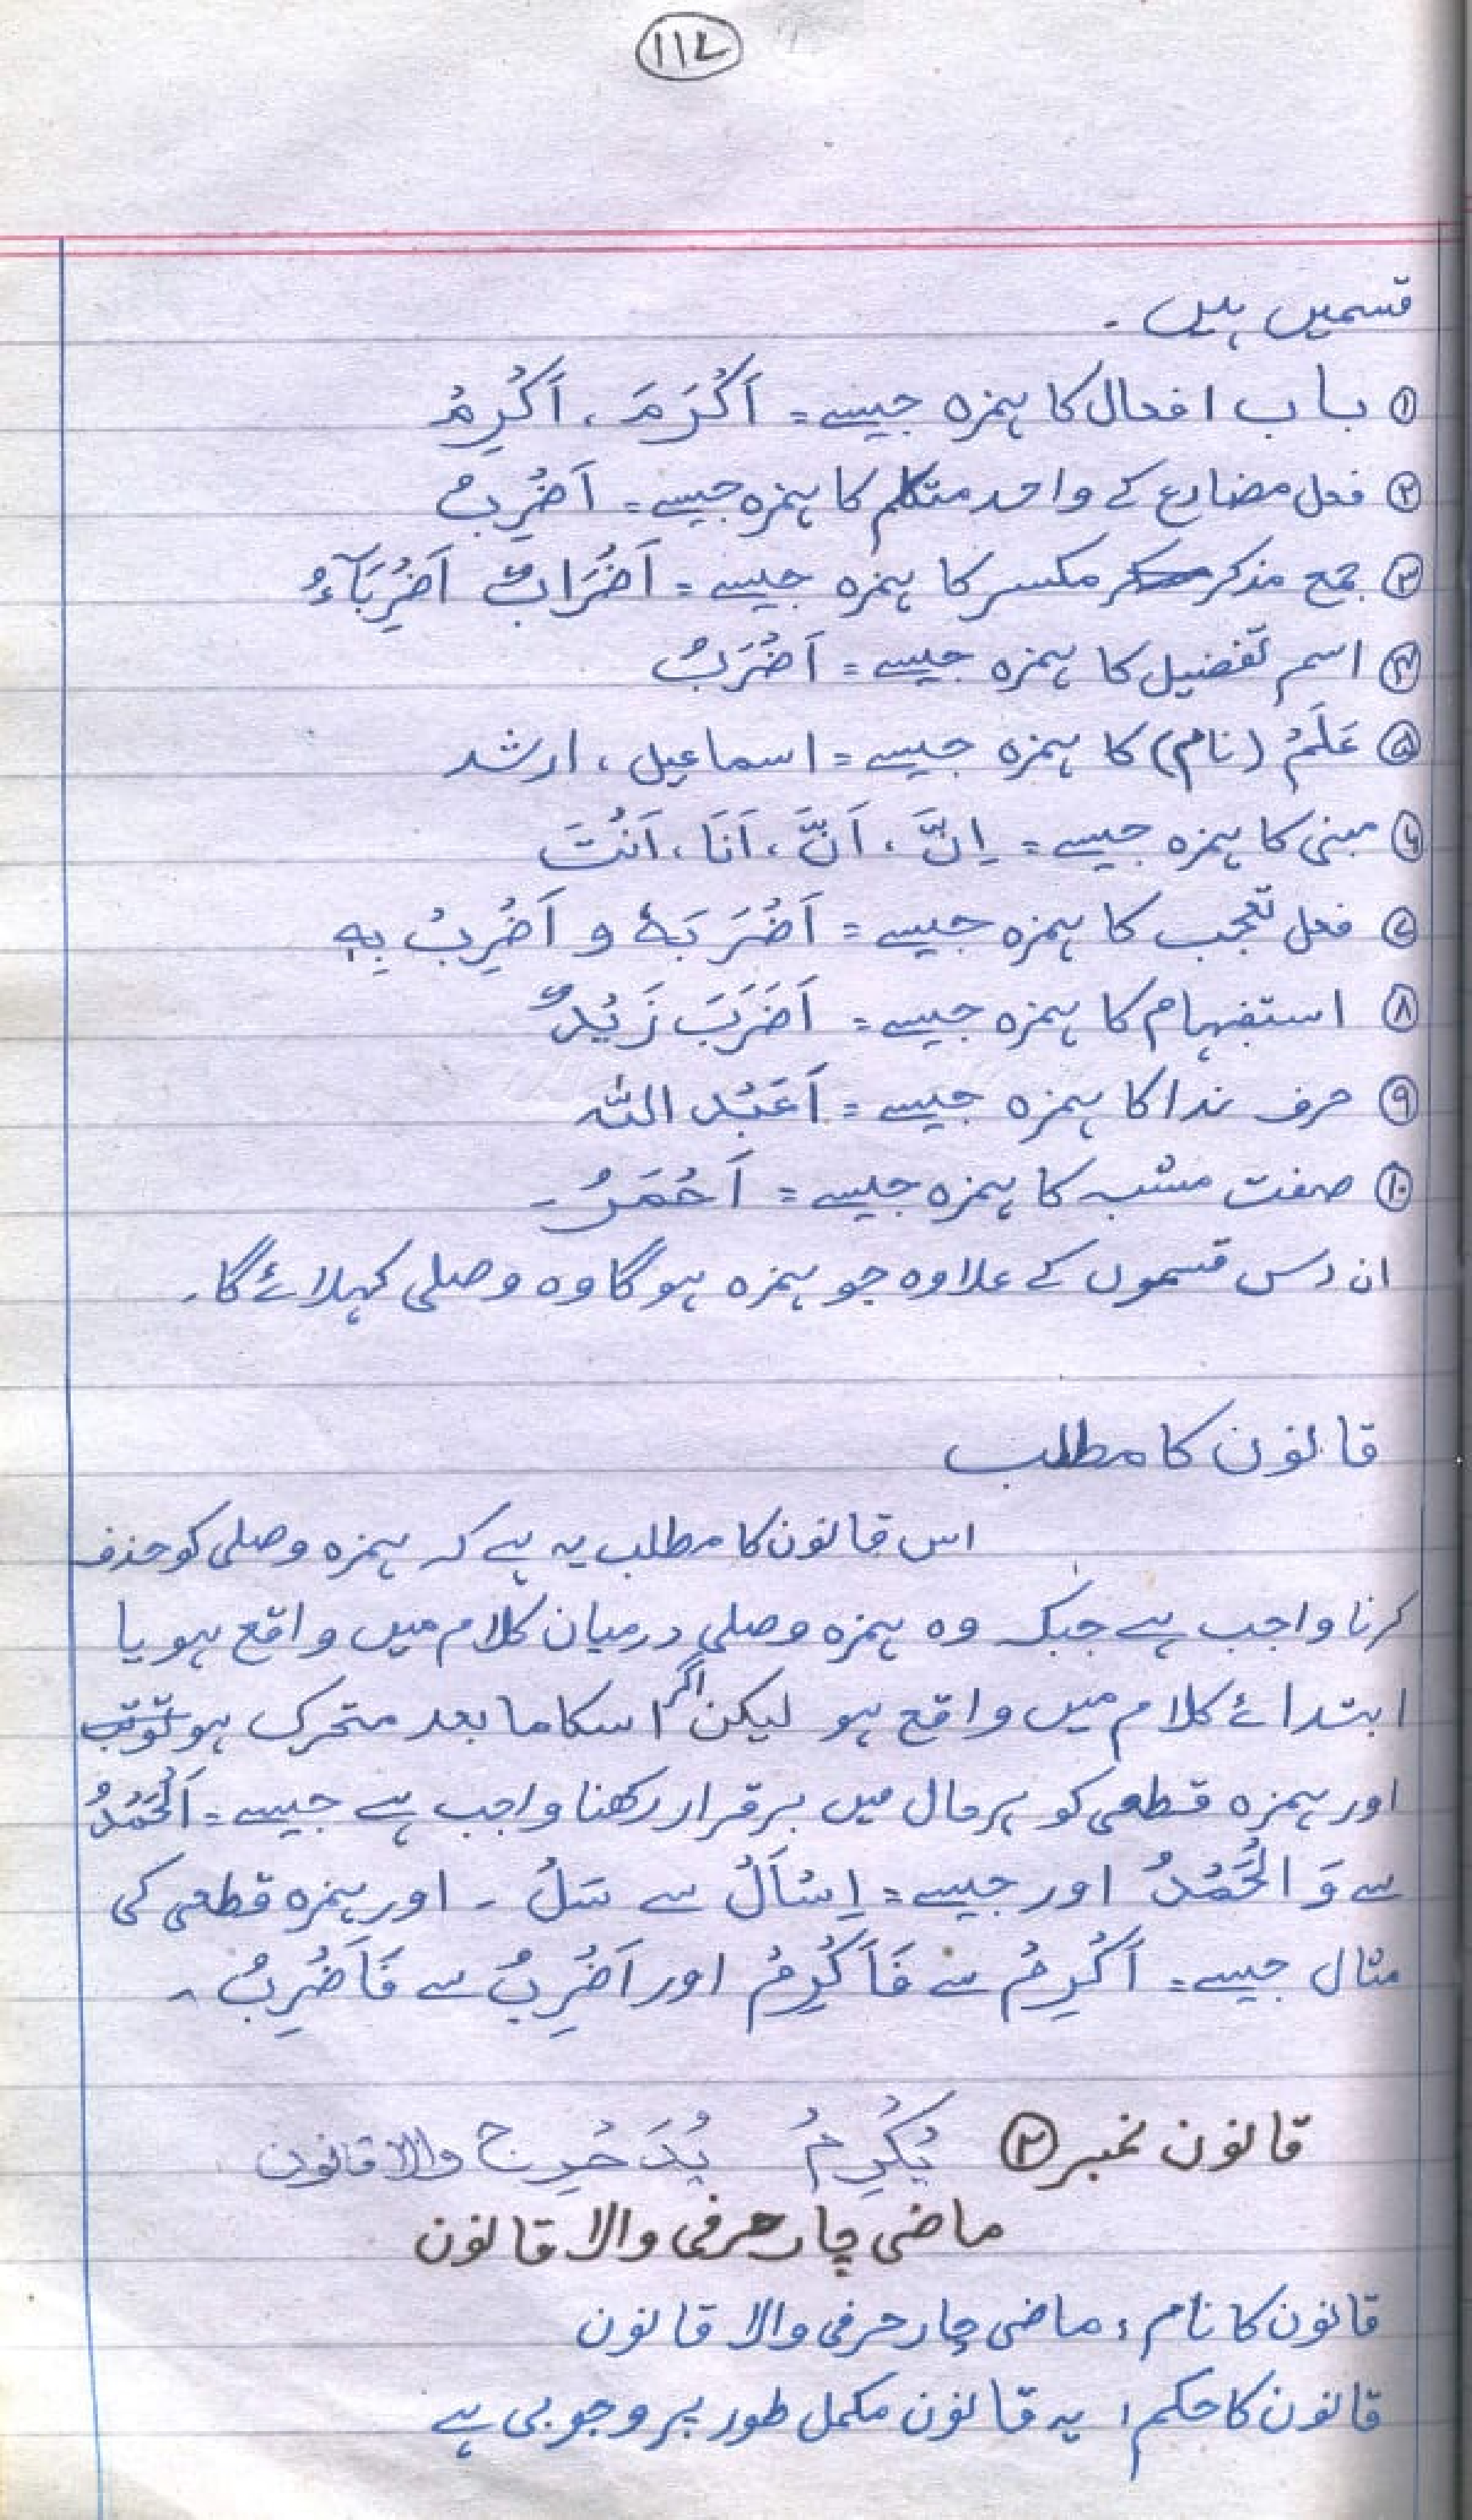 ۱۱۷
قسمیں ہیں ۔
① باب افعال کا ہمزہ جیسے = اَکْرَمَ ، اَکْرِمْ
② فعل مضارع کے واحد متکلم کا ہمزہ جیسے = اَضْرِبُ
③ جمع مذکر مکسر کا ہمزہ جیسے = اَضْرَابٌ اَضْرِبَآءُ
④ اسم تفضیل کا ہمزہ جیسے = اَضْرَبُ
⑤ عَلَمْ (نام) کا ہمزہ جیسے = اسماعیل ، ارشد
⑥ مبنی کا ہمزہ جیسے = اِنَّ ، اَنَّ ، اَنَا ، اَنْتَ
⑦ فعل تعجب کا ہمزہ جیسے = اَضْرَبَہٗ و اَضْرِبْ بِہٖ
⑧ استفہام کا ہمزہ جیسے = اَضَرَبَ زَیْدٌ
⑨ حرف ندا کا ہمزہ جیسے = اَعَبْدَ اللہ
⑩ صفت مشبہ کا ہمزہ جیسے = اَحْمَرُ ۔
ان دس قسموں کے علاوہ جو ہمزہ ہوگا وہ وصلی کہلائے گا ۔
قانون کا مطلب
اس قانون کا مطلب یہ ہے کہ ہمزہ وصلی کو حذف
کرنا واجب ہے جبکہ وہ ہمزہ وصلی درمیان کلام میں واقع ہو یا
ابتدائے کلام میں واقع ہو لیکن اگر اسکا ما بعد متحرک ہو
اور ہمزہ قطعی کو ہر حال میں برقرار رکھنا واجب ہے جیسے = اَلْحَمْدُ
سے وَالْحَمْدُ اور جیسے = اِسْاَلْ سے سَلْ ۔ اور ہمزہ قطعی کی
مثال جیسے = اَکْرِمْ سے فَاَکْرِمْ اور اَضْرِبُ سے فَاَضْرِبُ ۔
قانون نمبر ② یُکْرِمُ یُدَحْرِجُ والا قانون
ماضی چار حرفی والا قانون
قانون کا نام : ماضی چار حرفی والا قانون
قانون کا حکم : یہ قانون مکمل طور پر وجوبی ہے